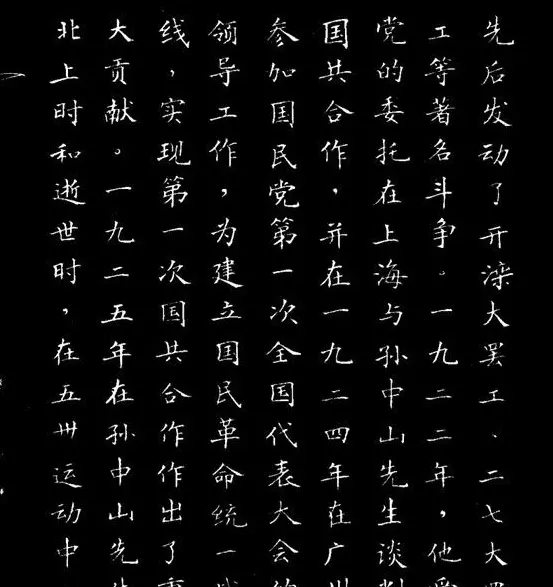 先后发动了开滦大罢工、二七大罢
工等著名斗争。一九二二年，他受
党的委托在上海与孙中山先生谈判
国共合作，并在一九二四年在广州
参加国民党第一次全国代表大会的
领导工作，为建立国民革命统一战
线，实现第一次国共合作作出了重
大贡献。一九二五年在孙中山先生
北上时和逝世时，在五卅运动中